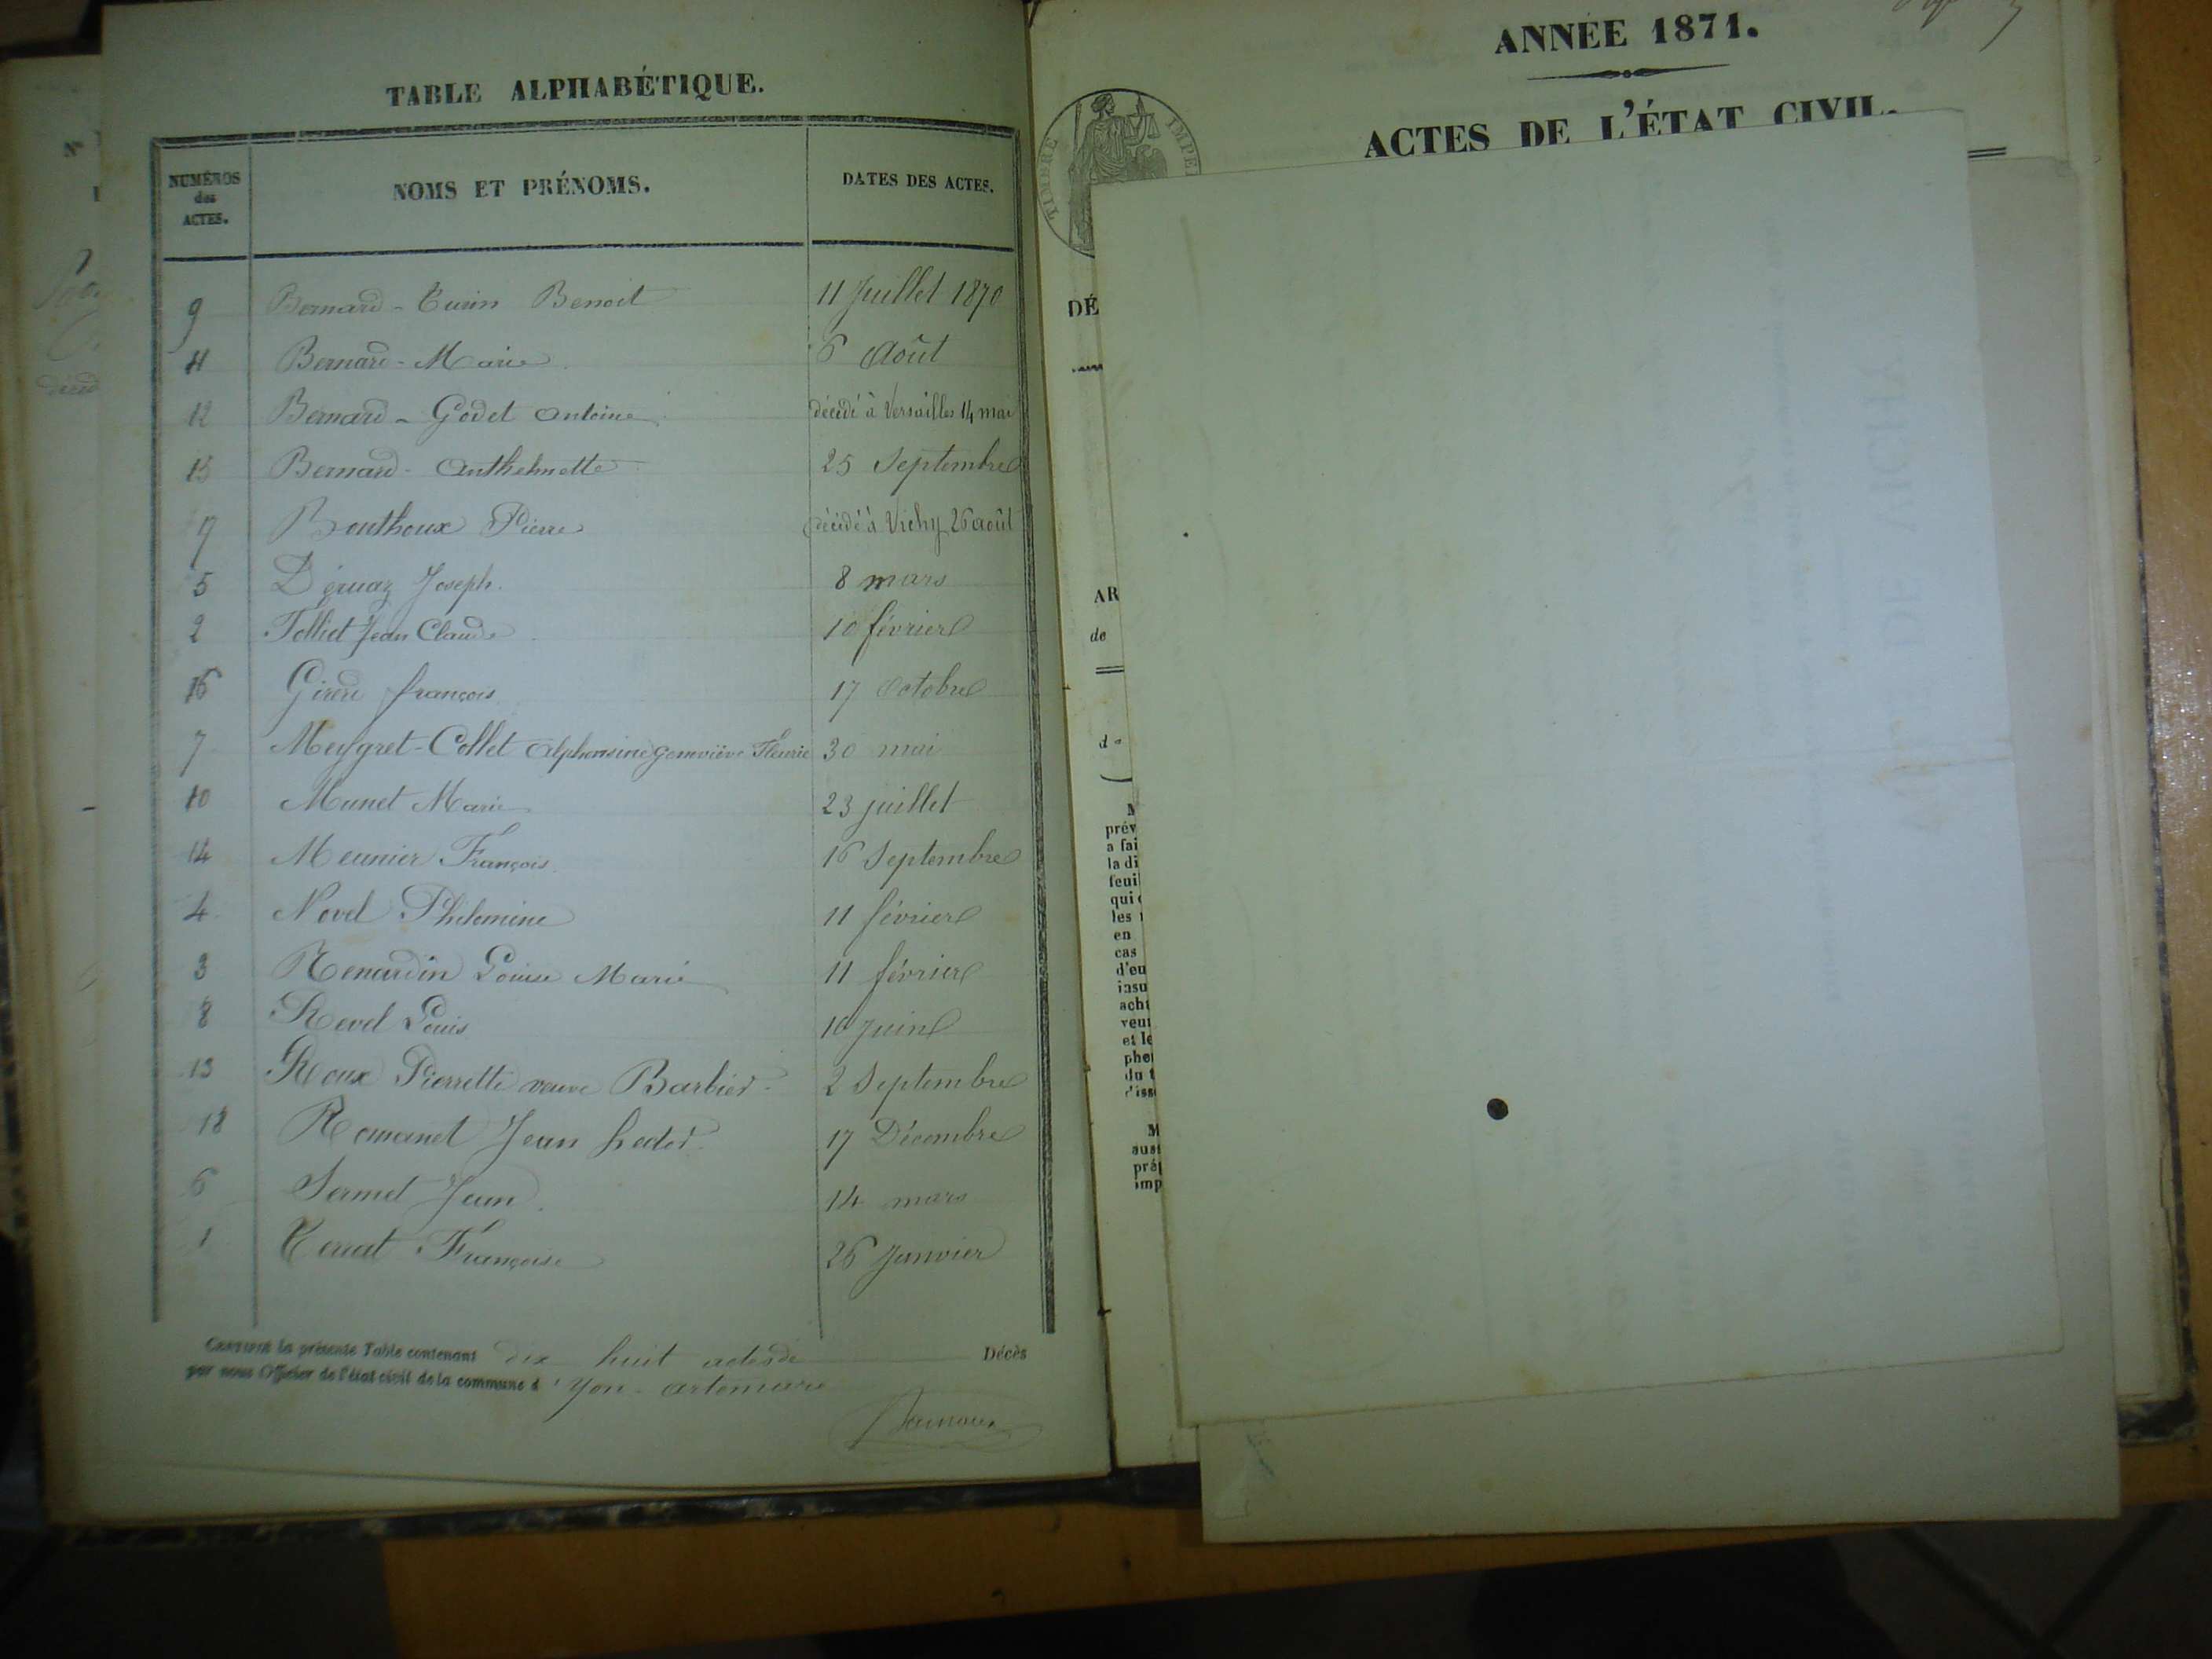 TABLE ALPHABÉTIQUE.
NUMÉROS des ACTES.
NOMS ET PRÉNOMS.
DATES DES ACTES.
9 Bernard - Turin Benoit 11 Juillet 1870
11 Bernard - Marie 6 Août
12 Bernard - Godet Antoine décédé à Versailles 14 mai
15 Bernard - Anthelmette 25 Septembre
17 Bouthoux Pierre décédé à Vichy 26 août
5 Déruaz Joseph. 8 mars
2 Folliet Jean Claude 10 février
16 Girerd françois 17 Octobre
7 Meygret-Collet Alphonsine Geneviève Fleurie 30 mai
10 Munet Marie 23 juillet
14 Meunier François. 16 Septembre
4 Novel Philomine 11 février
3 Renardin Louise Marie 11 février
8 Revel Louis 10 Juin
13 Roux Pierrette veuve Barbier 2 Septembre
18 Romanet Jean 17 Décembre
6 Sermet Jean. 14 mars
1 Terrat Françoise 26 Janvier
CERTIFIÉ la présente Table contenant dix huit actes de Décès
par nous Officier de l'état civil de la commune d'Yon - artemare
ANNÉE 1871.
ACTES DE L'ÉTAT CIVIL.
TIMBRE IMPÉ
DÉ
AR
de
d
prév
a fai
la di
feuil
qui
les
en
cas
d'eu
insu
ache
veut
et le
phe
du t
d'iss
M
aus
pré
imp